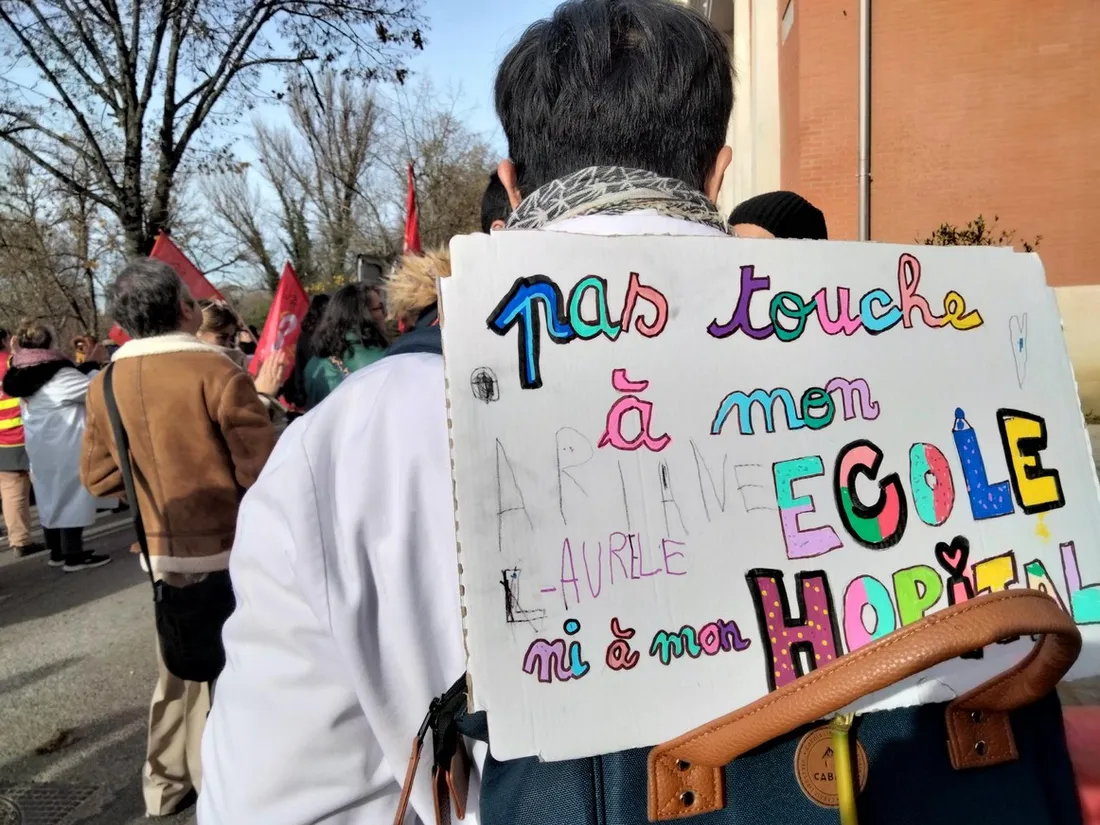 pas touche
à mon
ARIANE
ECOLE
L-AURELE
ni à mon
HOPITAL